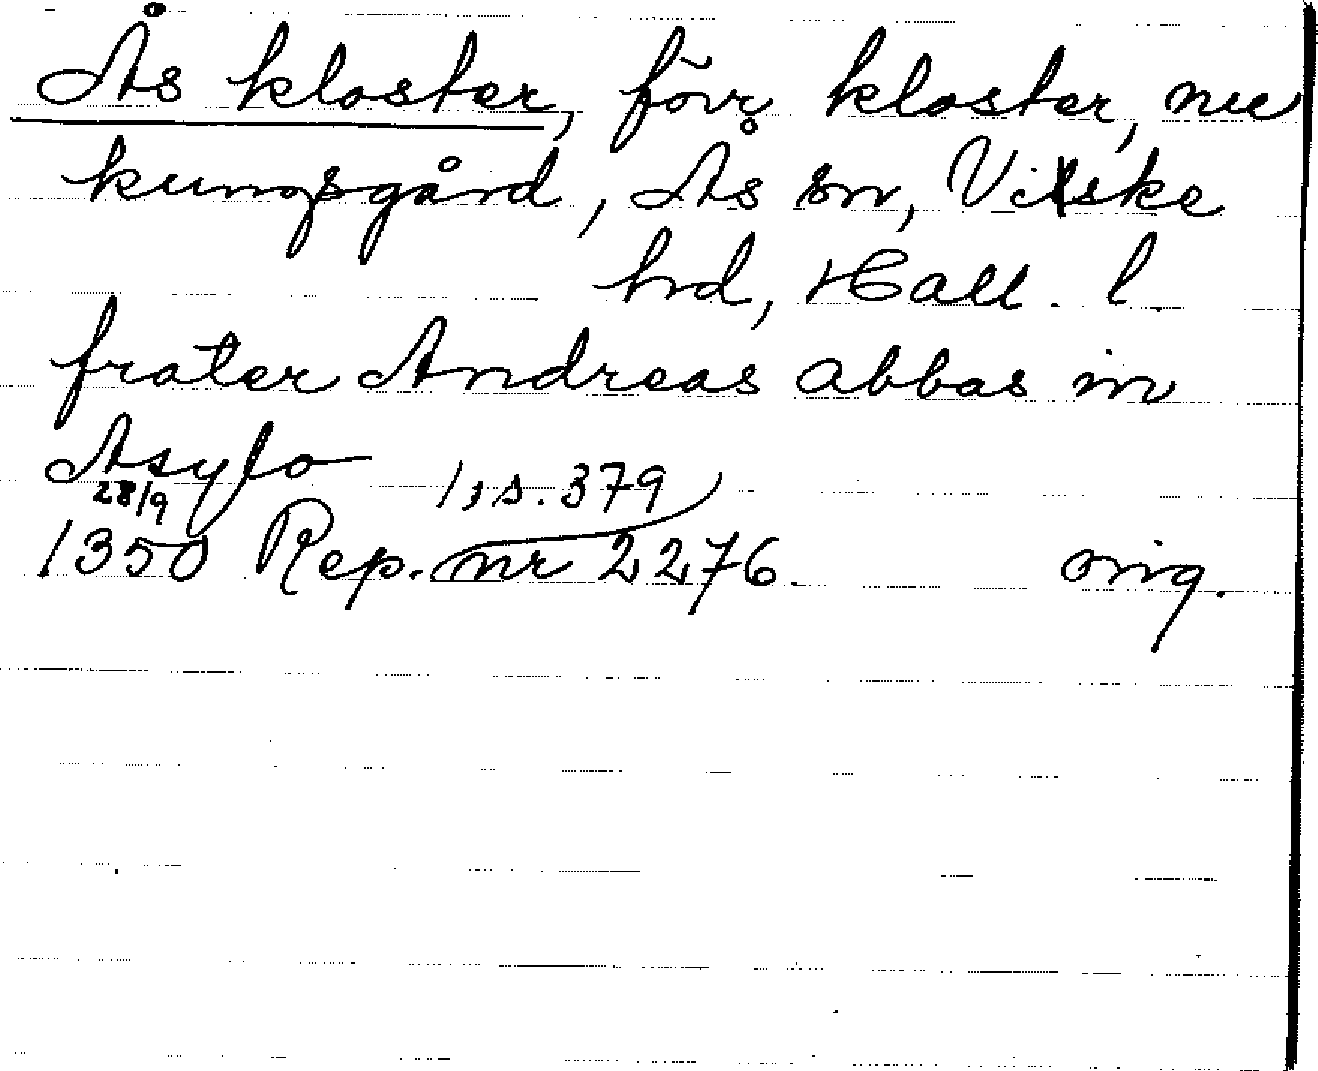 Ås kloster, förr kloster, nu
kungsgård, Ås sn, Viske
hd, Hall. l
frater Andreas abbas in
Asylo
28/9 1, s. 379
1350 Rep. nr 2276. orig.